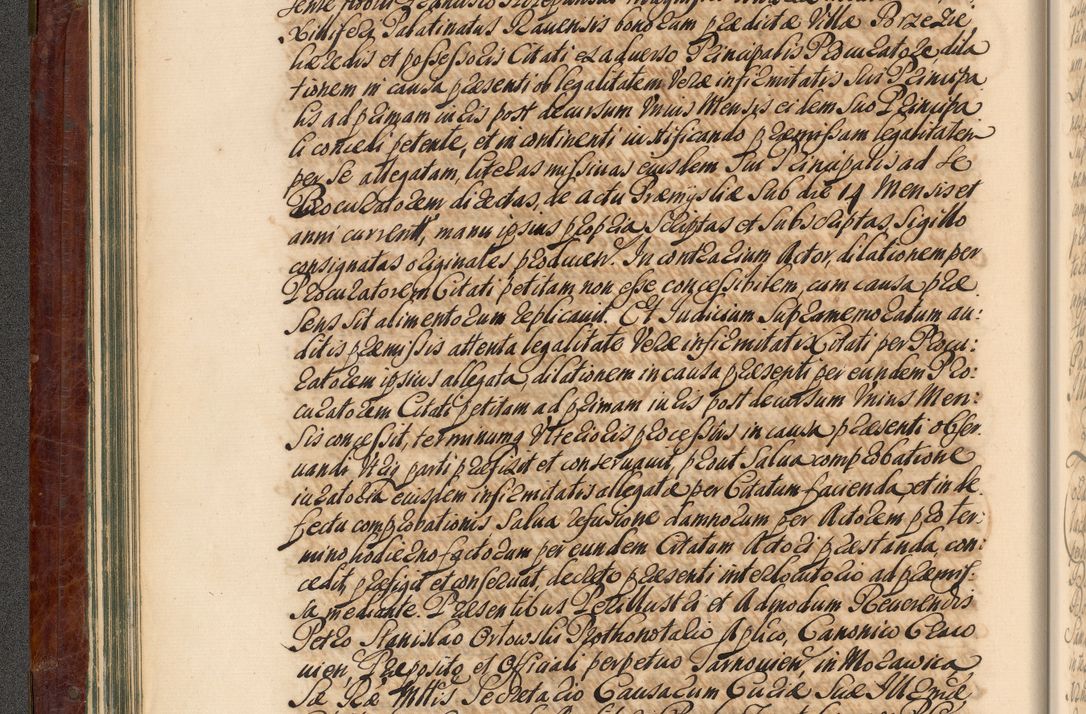 Xillifeɽ Palatinatus Ravensis bonorum prædictæ Villæ Brzezie
hæredis et possessoris Citati ex adverso Principalis Procuratore, dila
tionem in causa præsenti ob legalitatem Veræ infirmitatis Sui Principa
lis ad primam iuris post decursum Unius Mensis eidem Suo Principa
li concedi petente, et in continenti iustificando præmissam legalitatem
per Se allegatam, literas missivas eiusdem Sui Principalis ad Se
Procuratorem directas, de actu Præmysliæ Sub die 14 Mensis et
anni current, manu ipsius propria Scriptas et Subscriptas, Sigillo
consignatas originales producen. In contrarium Actor, dilationem per
Procuratorem Citati petitam non esse concessibilem, cum causa præ
sens sit alimentorum replicavit. Et Judicium Supramemoratum au:
ditis præmissis attenta legalitate Veræ infirmitatis Citati per Procu:
ratorem ipsius allegata, dilationem in causa præsenti per eundem Pro:
curatorem Citati petitam ad primam iuris post decursum Unius Men:
sis concessit, terminumq Ulterioris processus in causa præsenti obser:
vandi Utriq parti præfixit et conservavit, prout Salva comprobatione
iuratoria eiusdem infirmitatis allegatæ per Citatum facienda, et in de
fectu comprobationis Salva refusione damnorum per Actorem pro ter:
mino hodierno factorum per eundem Citatum Actori præstanda, con:
cedit, præfigit et conservat, decreto præsenti interlocutorio ad præmis:
sa mediante. Præsentibus Perillustri et Admodum Reverendis
Petro Stanislao Orłowski Prothonotario Aplico, Canonico Craco
vien, Præposito et Officiali perpetuo Tarnovien, in Morawica
Sæ Ræ Mttis Secretario Causarum Curiæ Suæ Illmæ